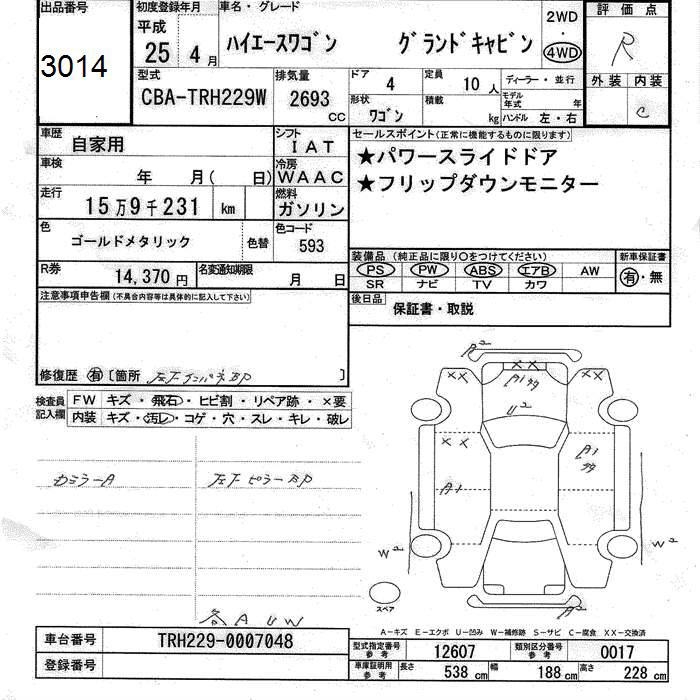 出品番号
3014
初度登録年月
平成
25 4 月
車名・グレード
ハイエースワゴン グランドキャビン
2WD
・
4WD
評価点
R
外装 内装
C
型式
CBA-TRH229W
排気量
2693 CC
ドア 4
定員 10 人
ディーラー・並行
形状 ワゴン
積載 kg
モデル年式 年
ハンドル 左・右
車歴 自家用
シフト IAT
車検 年 月( 日)
冷房 WAAC
走行 15万9千231 km
燃料 ガソリン
色 ゴールドメタリック 色替
色コード 593
R券 14,370円
名変通知期限 月 日
セールスポイント(正常に機能するものに限ります)
★パワースライドドア
★フリップダウンモニター
装備品 (純正品に限り○をつけてください)
PS PW ABS エアB AW
SR ナビ TV カワ
新車保証書
有・無
後日品 保証書・取説
注意事項申告欄(不具合内容等は具体的に記入して下さい)
修復歴 有 〔箇所 〕
検査員記入欄
FW キズ・飛石・ヒビ割・リペア跡・×要
内装 キズ・汚レ・コゲ・穴・スレ・キレ・破レ
カミラーA
各AUW
A2
XX
A1
U2
XX
A1
A1
W2
W2
A2
スペア
A-キズ E-エクボ U-凹み W-補修跡 S-サビ C-腐食 XX-交換済
車台番号 TRH229-0007048
登録番号
型式指定番号参考 12607
類別区分番号参考 0017
車庫証明用参考 長さ 538 cm 幅 188 cm 高さ 228 cm